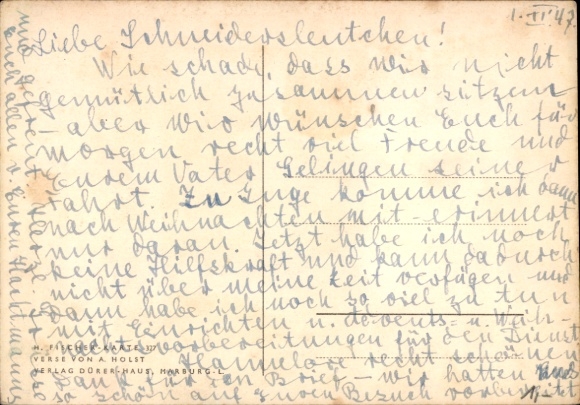 1. VI 47.
Liebe Schneidersleutchen!
Wie schade, dass wir nicht
gemütlich zusammen sitzen
- aber wir wünschen Euch für
morgen recht viel Freude und
Eurem Vater Gelingen seiner
Fahrt. Zu Inge komme ich dann
nach Weihnachten mit - erinnert
nur daran. Jetzt habe ich noch
keine Hilfskraft und kann dadurch
nicht über meine Zeit verfügen und
dann habe ich noch so viel zu tun
mit Einrichten u. Advents- u. Weih-
vorbereitungen für den Dienst
Hannelore recht schönen
Dank für den Brief - wir hatten uns
so schön auf Euren Besuch vorbereitet
und gefreut
Euch allen v. Euren
H. FISCHER-KARTE 37
VERSE VON A. HOLST
VERLAG DÜRER-HAUS, HARBURG-L.